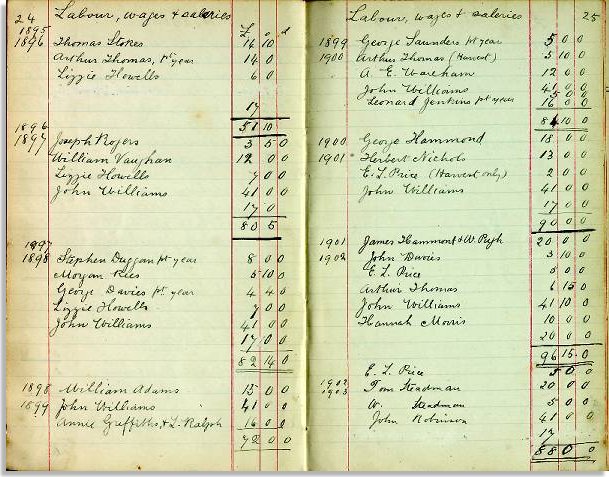 24 Labour, wages & saleries
1895 £ s d
1896 Thomas Stokes 14 10
Arthur Thomas, pt year 14 0
Lizzie Howells 6 0
17
1896 51 10
1897 Joseph Rogers 3 5 0
William Vaughan 12 0 0
Lizzie Howells 7 0 0
John Williams 41 0 0
17 0
80 5
1997
1898 Stephen Duggan pt year 8 0 0
Morgan Rees 5 10 0
George Davies pt year 4 4 0
Lizzie Howells 7 0 0
John Williams 41 0 0
17 0 0
82 14 0
1898 William Adams 15 0 0
1899 John Williams 41 0 0
Annie Griffiths, & L. Ralph 16 0 0
72 0 0
Labour, wages & saleries 25
1899 George Saunders pt year 5 0 0
1900 Arthur Thomas (Harvest) 3 10 0
A. E. Wareham 12 0 0
John Williams 41 0 0
Leonard Jenkins pt year 5 0 0
16 0 0
84 10 0
1900 George Hammond 18 0 0
1901 Herbert Nichols 13 0 0
E. L. Price (Harvest only) 2 0 0
John Williams 41 0 0
17 0 0
90 0 0
1901 James Hammont & W. Pugh 20 0 0
1902 John Davies 3 10 0
E. L. Price 5 0 0
Arthur Thomas 6 15 0
John Williams 41 10 0
Hannah Morris 10 0 0
20 0 0
96 15 0
E. L. Price 5 0 0
1902 Tom Steadman 20 0 0
1903 W. Steadman 5 0 0
John Robinson 41 0 0
17
88 0 0